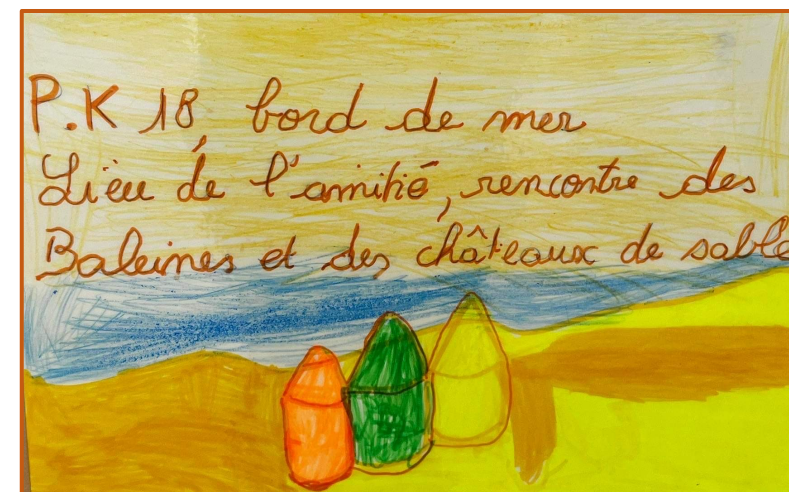 P.K 18, bord de mer
Lieu de l'amitié, rencontre des
Baleines et des châteaux de sable